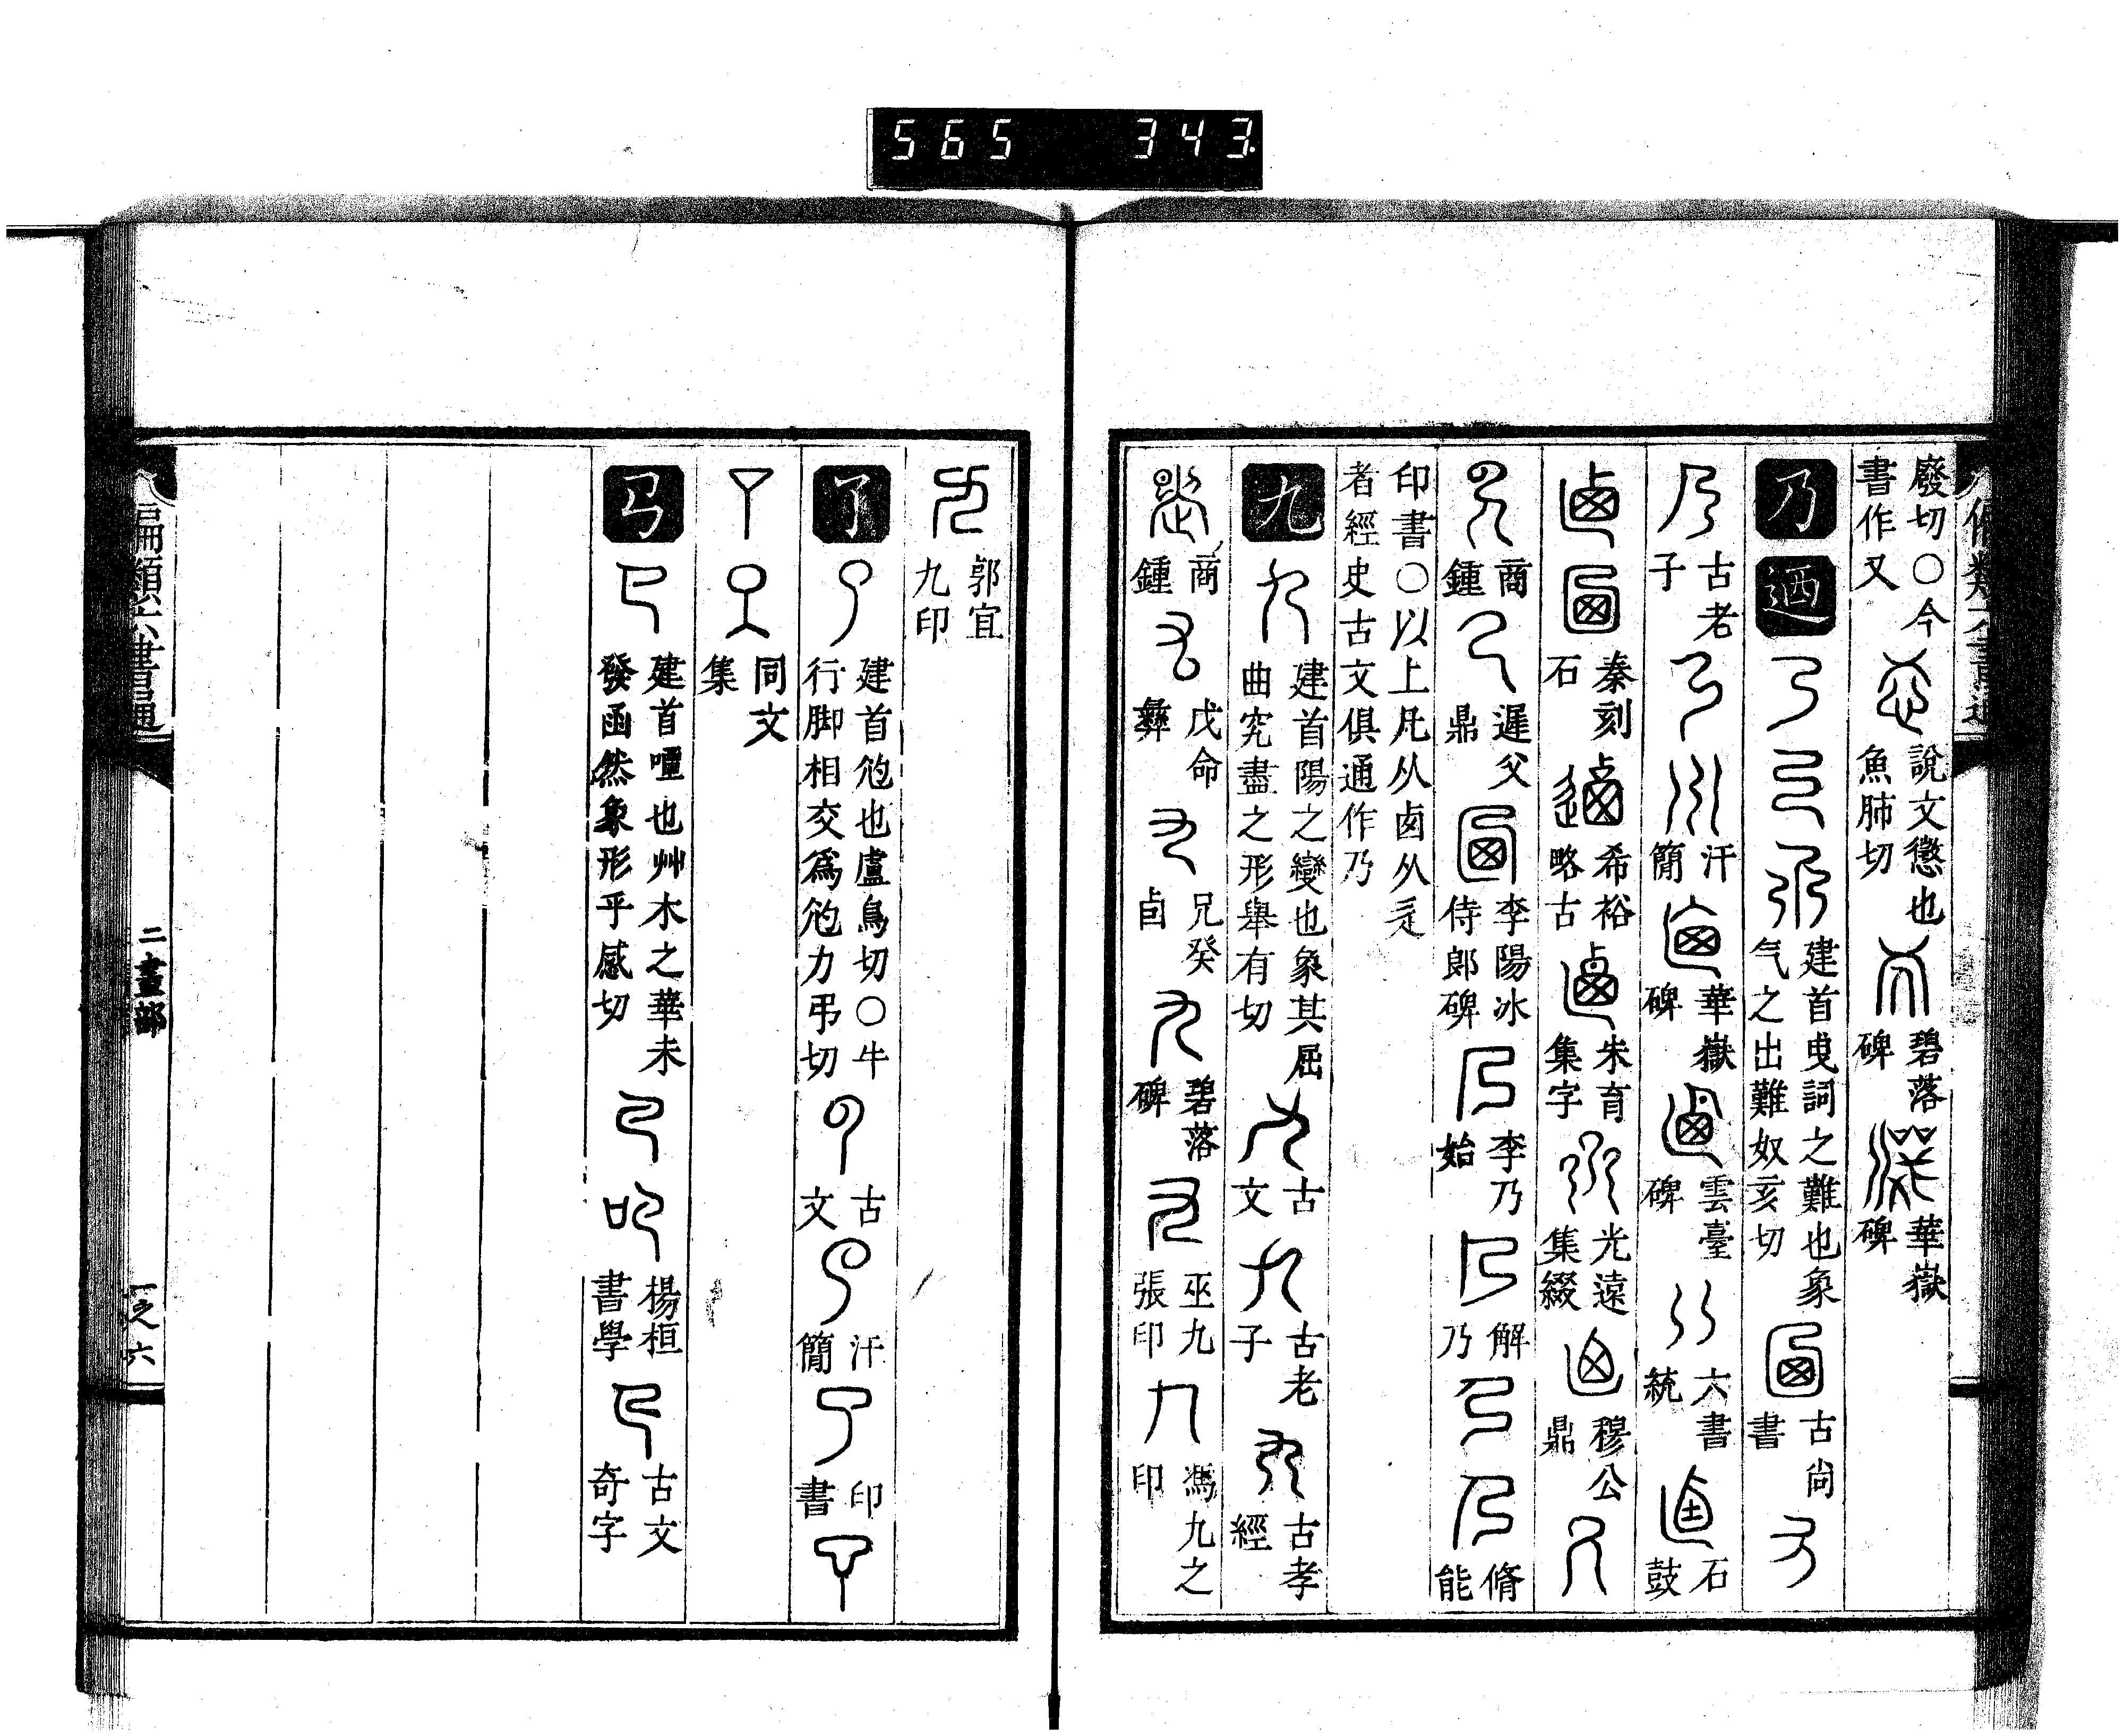 565 343
廢切○今
書作又
說文懲也
魚肺切
碧落
碑
華嶽
碑
乃
建首曳詞之難也象
气之出難奴亥切
古尚
書
古老
子
汗
簡
華嶽
碑
雲臺
碑
六書
統
石
鼓
秦刻
石
希裕
略古
朱育
集字
光遠
集綴
穆公
鼎
商
鍾
遲父
鼎
李陽冰
侍郎碑
李乃
始
解
乃
脩
能
印書○以上凡从卤从辵
者經史古文俱通作乃
九
建首陽之變也象其屈
曲究盡之形舉有切
古
文
古老
子
古孝
經
商
鍾
戊命
彝
兄癸
卣
碧落
碑
巫九
張印
馮九之
印
郭宜
九印
了
建首尥也盧鳥切○牛
行脚相交爲尥力弔切
古
文
汗
簡
印
書
同文
集
建首嘾也艸木之華未
發函然象形乎感切
楊桓
書學
古文
奇字
二畫部
一之六